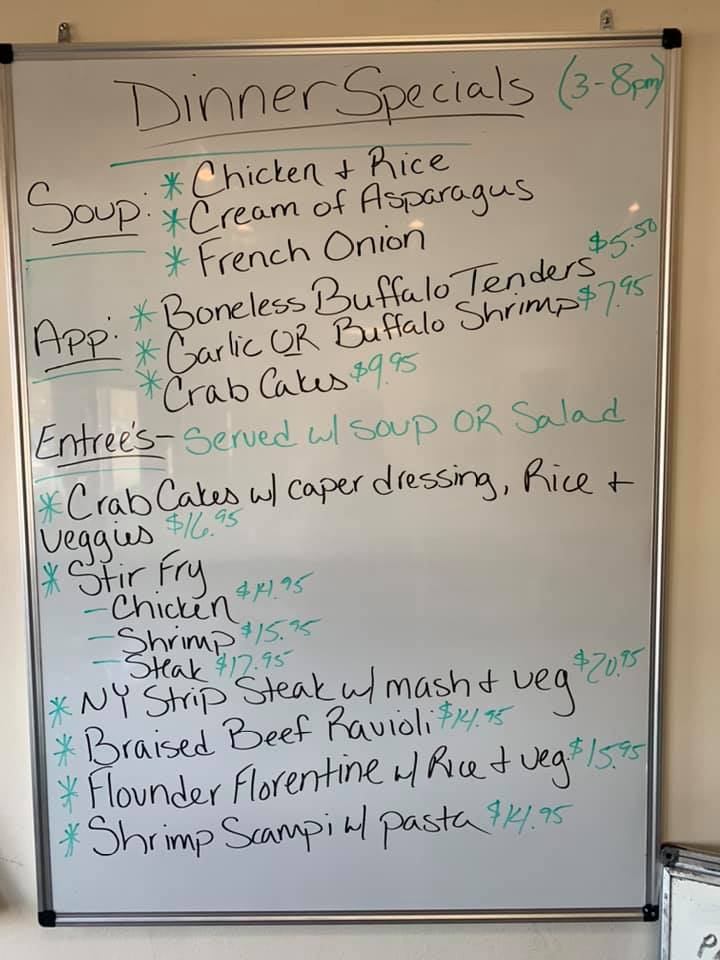 Dinner Specials (3-8pm)
Soup: * Chicken + Rice
* Cream of Asparagus
* French Onion
App: * Boneless Buffalo Tenders $5.50
* Garlic OR Buffalo Shrimp $7.95
* Crab Cakes $9.95
Entree's - Served w/ soup OR Salad
* Crab Cakes w/ caper dressing, Rice +
veggies $16.95
* Stir Fry
- Chicken $14.95
- Shrimp $15.95
- Steak $17.95
* NY Strip Steak w/ mash + veg $20.95
* Braised Beef Ravioli $14.95
* Flounder Florentine w/ Rice + veg $15.95
* Shrimp Scampi w/ pasta $14.95